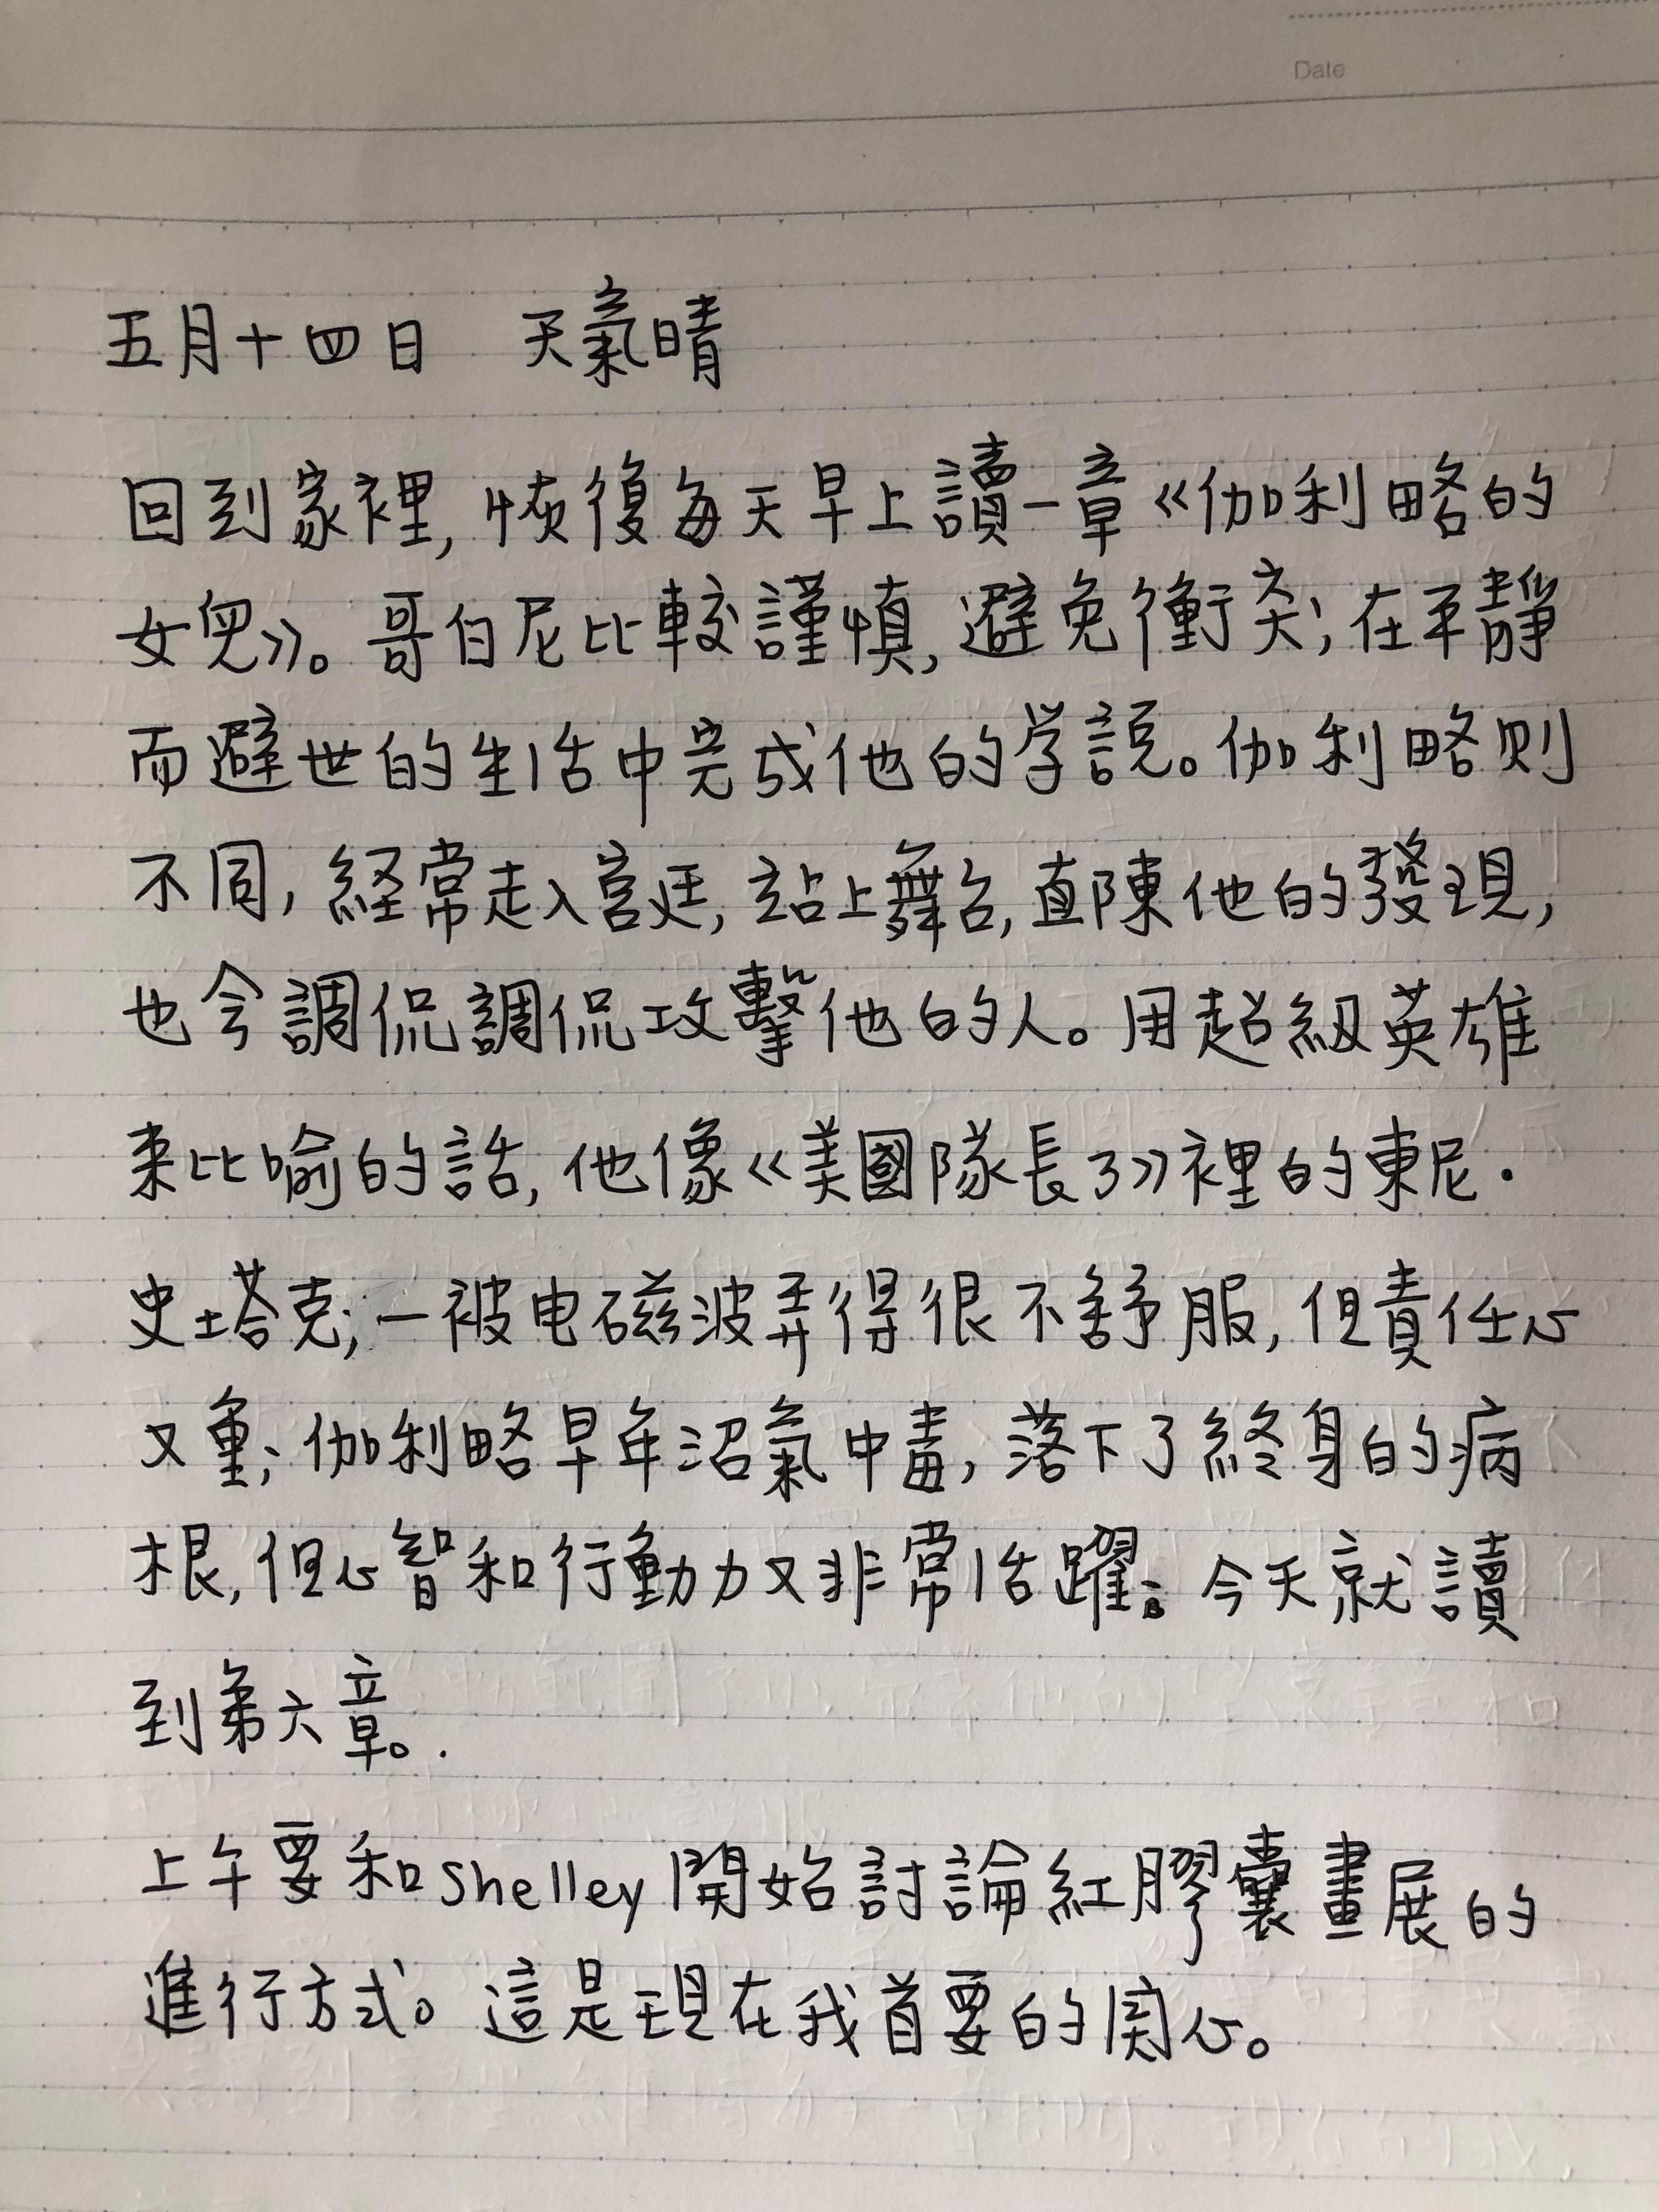 Date
五月十四日　天氣晴
回到家裡，恢復每天早上讀一章《伽利略的
女兒》。哥白尼比較謹慎，避免衝突，在平靜
而避世的生活中完成他的学説。伽利略則
不同，経常走入宮廷，站上舞台，直陳他的發現，
也会調侃調侃攻擊他的人。用超級英雄
来比喻的話，他像《美國隊長3》裡的東尼·
史塔克；一被电磁波弄得很不舒服，但責任心
又重；伽利略早年沼氣中毒，落下了終身的病
根，但心智和行動力又非常活躍。今天就讀
到第六章。
上午要和Shelley開始討論紅膠囊畫展的
進行方式。這是現在我首要的関心。